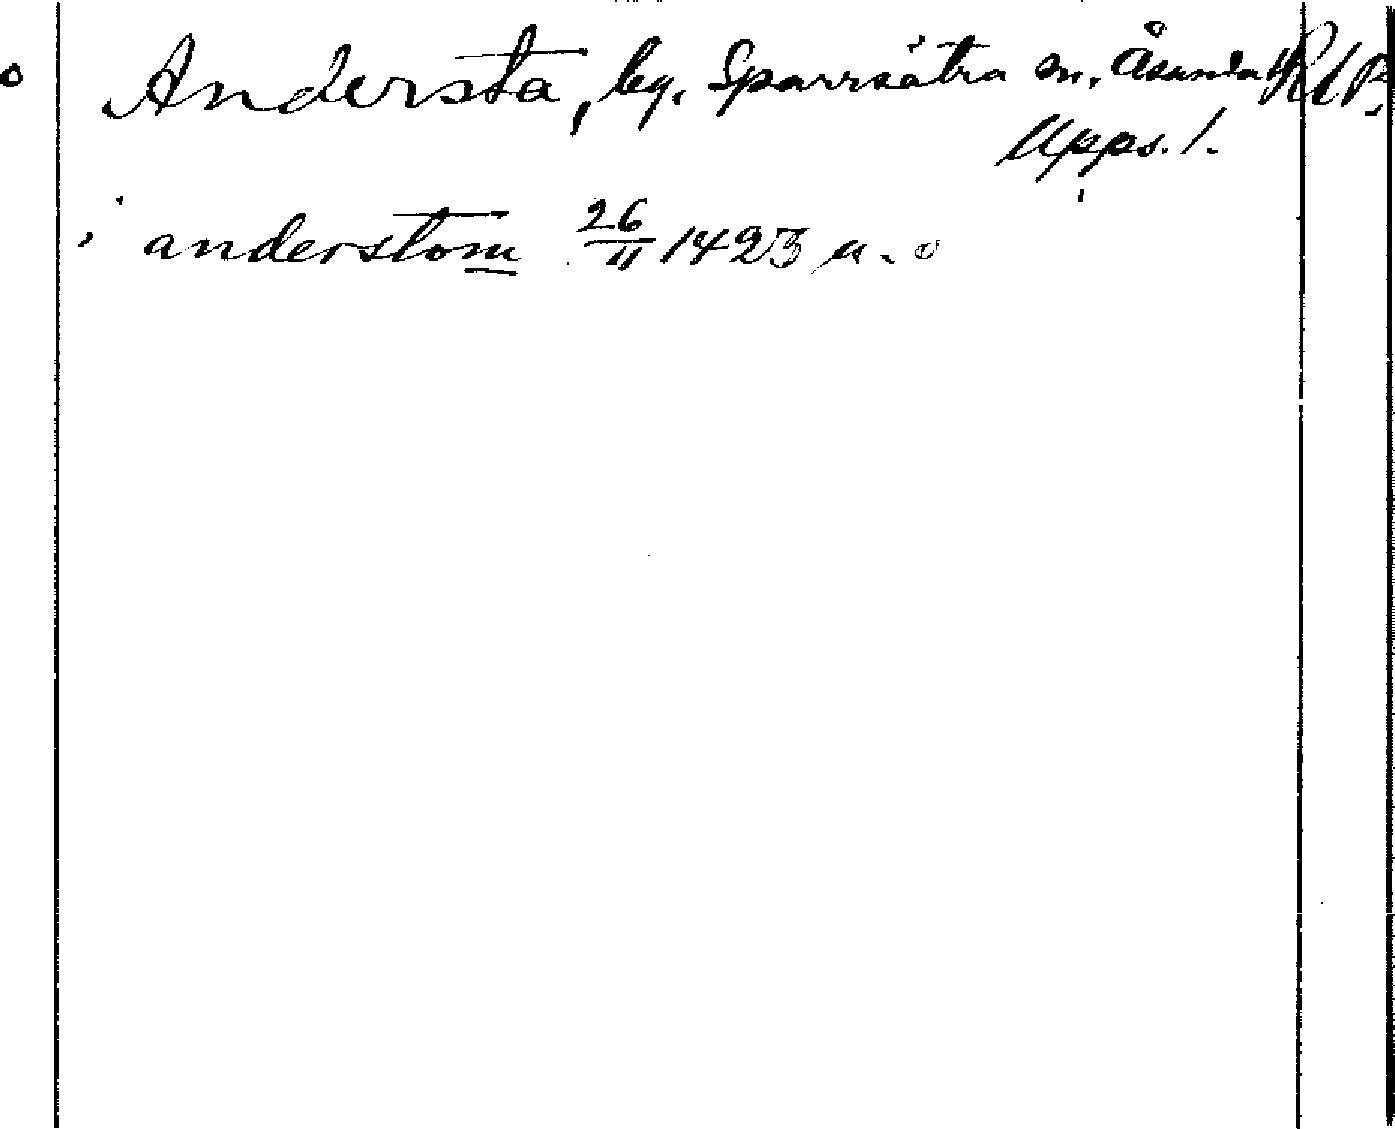 Andersta, by. Sparrsätra sn. Åsunda hd
Upps. l.
i anderstom 26/11 1423 u. o